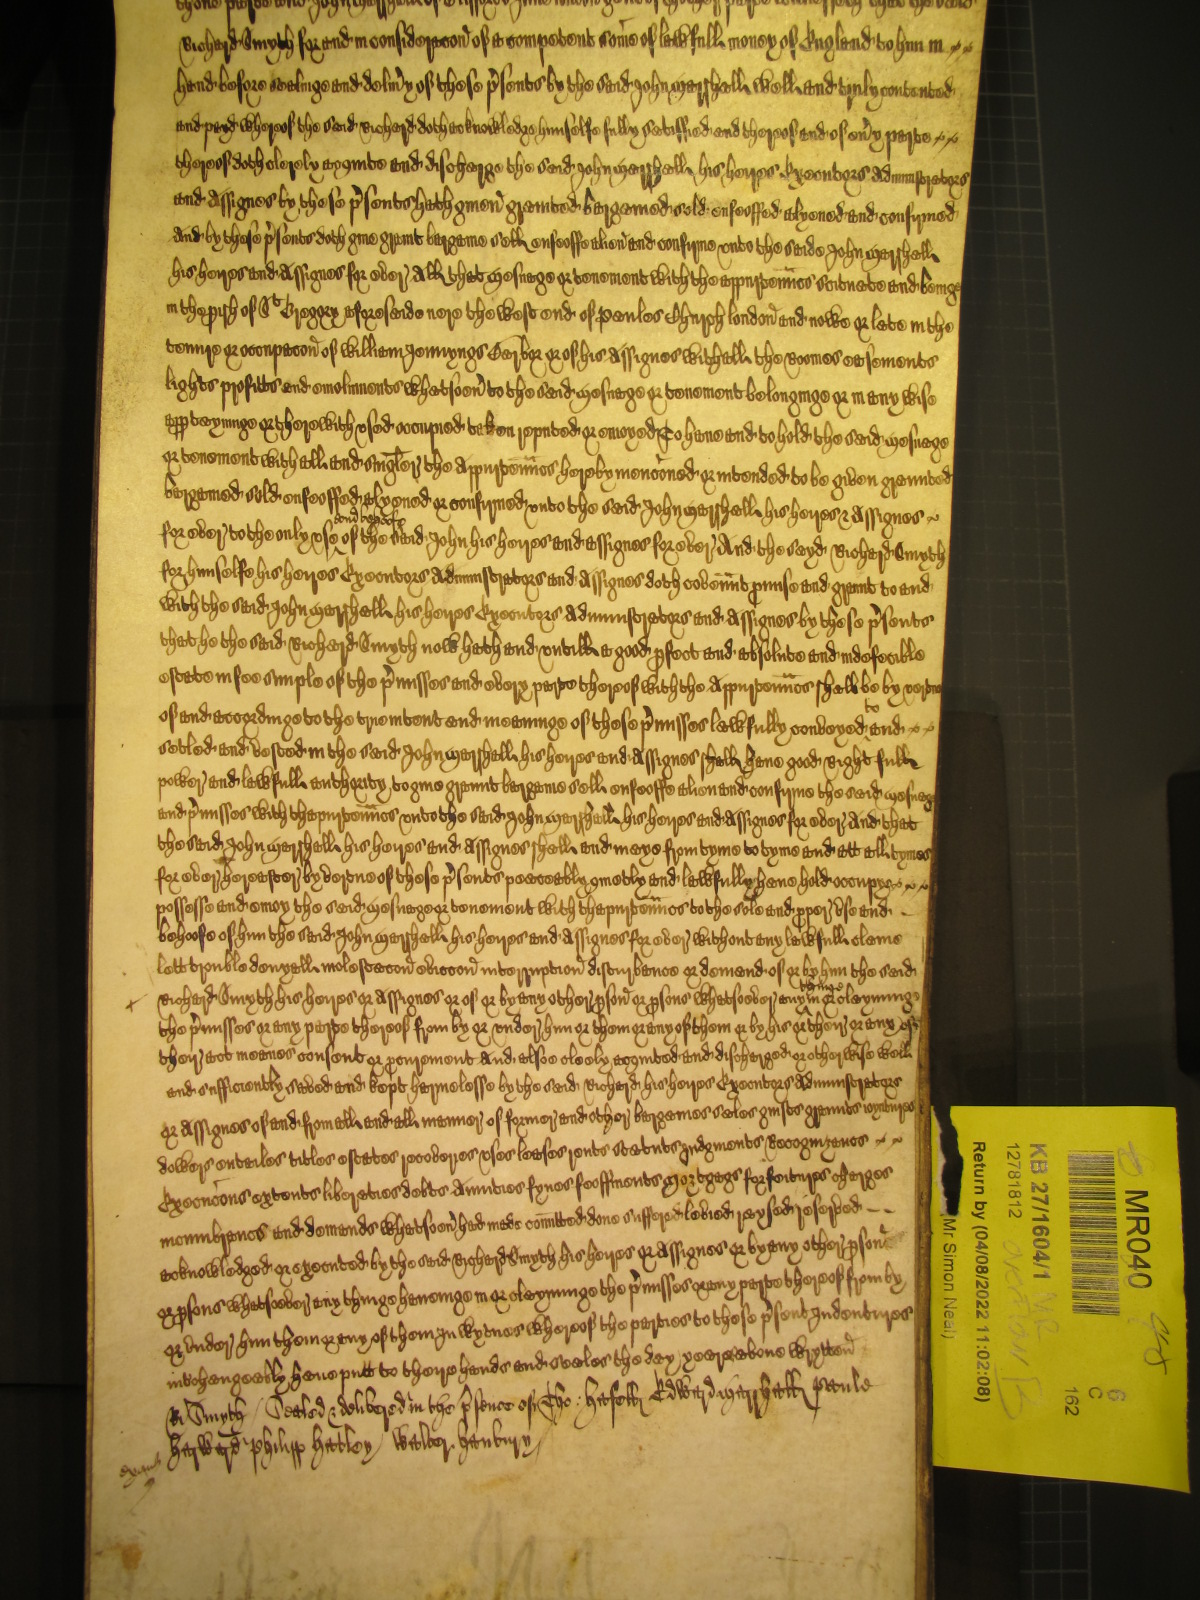 Richard Smyth for and in consideracon of a competent some of lawfull money of England to him in
hand before sealinge and delivy of these psents by the said John Marshall well and truly contented
and payd whereof the said Richard doth acknowledge himselfe fully satisfied and thereof and of evy parte
thereof doth clerely acquite and discharge the said John Marshall his heires Executors Administrators
and Assignes by these psents hath given graunted bargained sold enfeoffed alyened and confirmed
And by these psents doth give graunt bargaine sell enfeoffe alien and confirme unto the saide John Marshall
his heires and Assignes for ever All that Mesuage or tenement with the appurtennces scituate and beinge
in the pish of St Gregory aforesaide nere the west end of Paules Church london and nowe or late in the
tenure or occupacon of William Jennyngs or of his Assignes with all the Roomes easements
lights profitts and emoluments whatsoevr to the said Mesuage or tenement belonginge or in any wise
apptayninge or therewith used occupied taken reputed or enioyed To have and to hold the said Mesuage
or tenement with all and singler the Appurtennces hereby menconed or intended to be given graunted
bargained sold enfeoffed alyened or confirmed unto the said John Marshall his heires & Assignes
for ever to the only use and behoofe of the said John his heires and assignes for ever And the sayd Richard Smyth
for himselfe his heires Executors Administrators and Assignes doth covennt pmise and graunt to and
with the said John Marshall his heires Executors Administrators and Assignes by these psents
that he the said Richard Smyth now hath and untill a good pfect and absolute and indefecible
estate in fee simple of the pmisses and every parte thereof with the Appurtennces shall be by vertue
of and accordinge to the true intent and meaninge of these pmisses lawfully conveyed to and
setled and vested in the said John Marshall his heires and Assignes shall have good Right full
power and lawfull authority to give graunt bargaine sell enfeoffe alien and confirme the said Mesuage
and pmisses with thapurtennces unto the said John Marshall his heires and Assignes for ever And that
the said John Marshall his heires and Assignes shall and maye from tyme to tyme and att all tymes
for ever hereafter by vertue of these psents peaceably quietly and lawfully have hold occupye
possesse and enioy the said Mesuage or tenement with thapurtennces to the sole and pper use and
behoofe of him the said John Marshall his heires and Assignes for ever without any lawfull clame
lett trouble denyall molestacon eviccon interruption disturbance or demand of or by him the said
Richard Smyth his heires or Assignes or of or by any other pson or psons whatsoever any thinge in or clayminge
the pmisses or any parte thereof from by or under him or them or any of them or by his or their or any of
their act meanes consent or procurement And alsoe cleely acquited and discharged or otherwise well
and sufficiently saved and kept harmelesse by the said Richard his heires Executors Administrators
or Assignes of and from all and all manner of former and other bargaines sales guifts graunts ioyntures
dowers entailes titles estates recoveries uses leases rents statuts Judgments Recognizances
Execucons extents liberaties debts Anuities fynes feoffments Mortgags forfeitures charges
incumbrances and demands whatsoevr had made comitted done suffered levied raysed reserved
acknowledged or executed by the said Richard Smyth his heires or Assignes or by any other pson
or psons whatsoever any thinge haveinge in or clayminge the pmisses or any parte thereof from by
or under him them or any of them In wytnes whereof the parties to these psent Indentures
interchangeably have putt to there hands and seales the day yeere above wrytten
Ri Smyth Sealed & delivered in the psence of Tho: Edward Marshall Paule
Harward Philipp Hatley Walter Hanbury
MR040
6
C
162
KB 27/1604/1
12781812
Return by (04/08/2022 11:02:08)
Mr Simon Neal